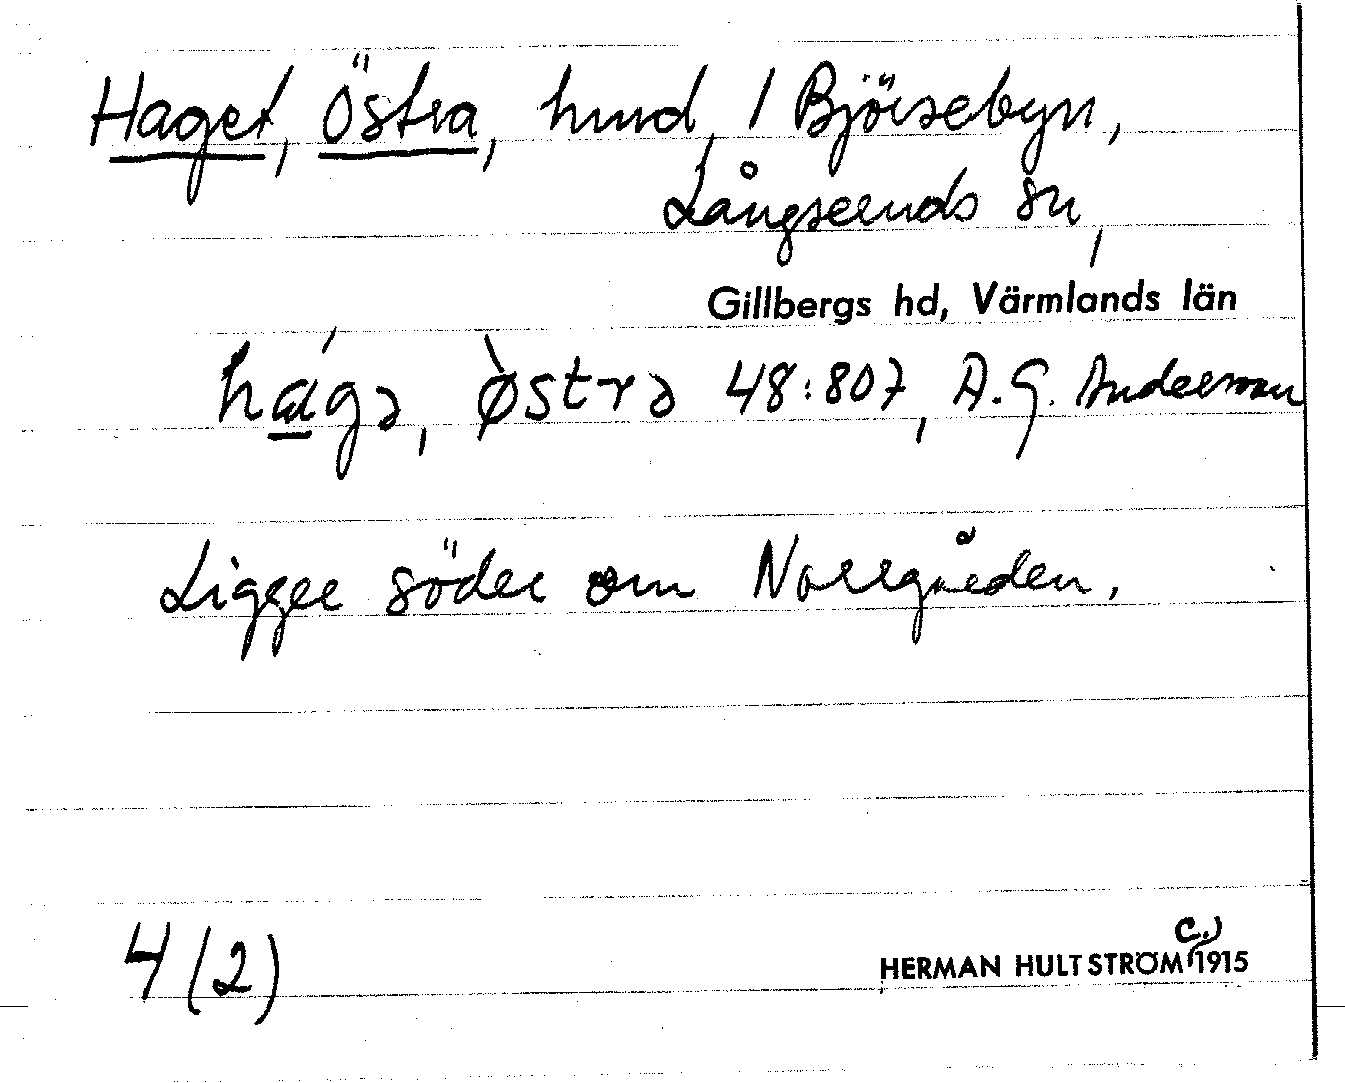 Haget, Östra, hmd 1 Björsebyn,
Långseruds sn,
Gillbergs hd, Värmlands län
hágə, ø̀strə 48:807, A.G. Andersson
Ligger söder om Norrgården.
4 (2)
HERMAN HULTSTRÖM c.) 1915